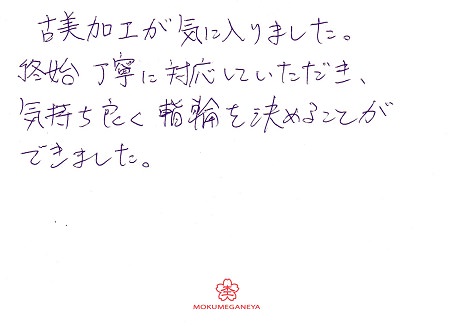 古美加工が気に入りました。
終始丁寧に対応していただき、
気持ち良く指輪を決めることが
できました。
MOKUMEGANEYA